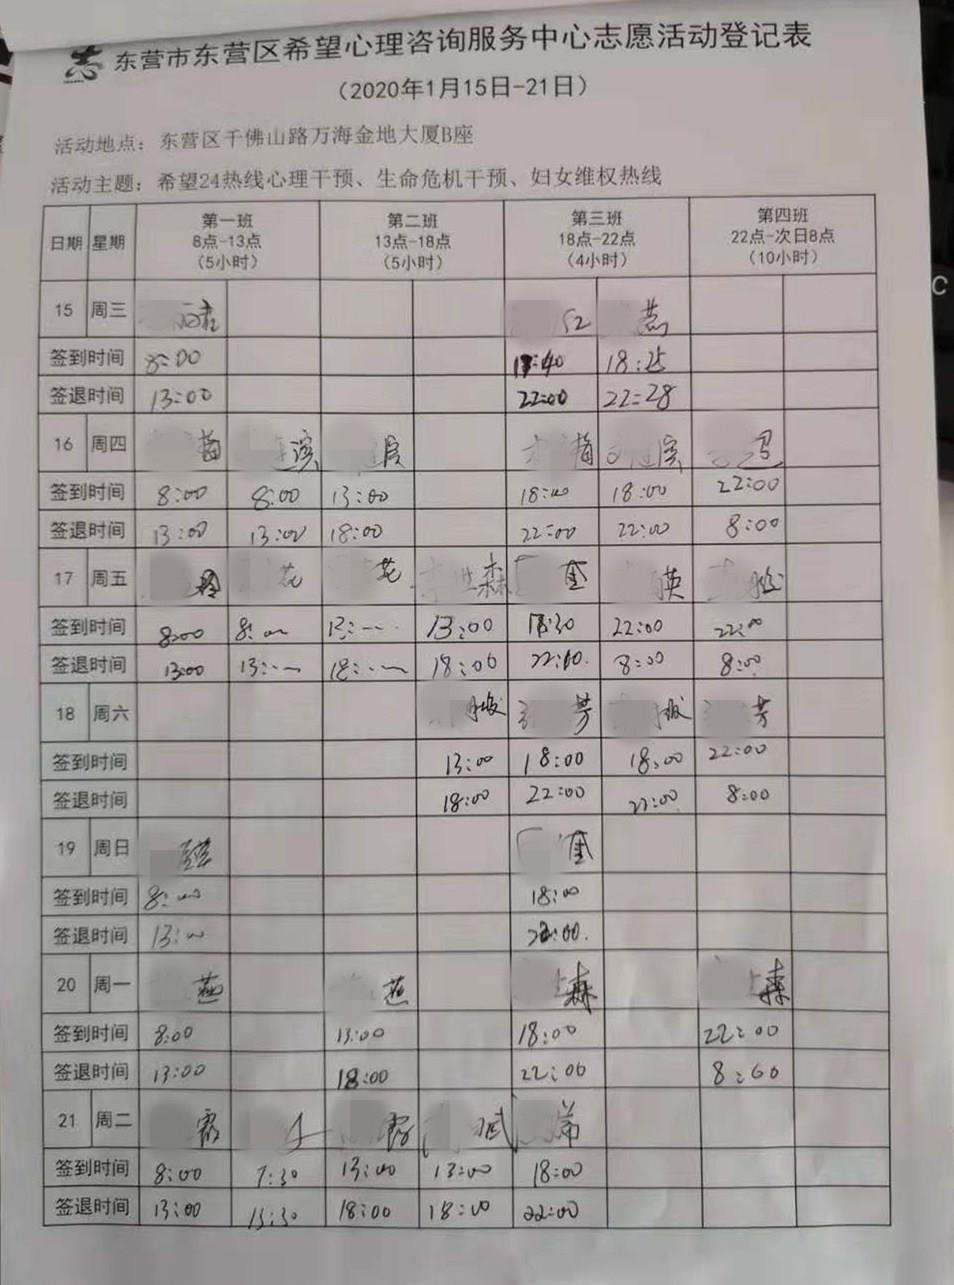 东营市东营区希望心理咨询服务中心志愿活动登记表
（2020年1月15日-21日）
活动地点：东营区千佛山路万海金地大厦B座
活动主题：希望24热线心理干预、生命危机干预、妇女维权热线
日期 星期 第一班 8点-13点 （5小时） 第二班 13点-18点 （5小时） 第三班 18点-22点 （4小时） 第四班 22点-次日8点 （10小时）
15 周三 红 燕
签到时间 8:00 17:40 18:25
签退时间 13:00 22:00 22:28
16 周四 梅 滨 滨 梅 滨
签到时间 8:00 8:00 13:00 18:00 18:00 22:00
签退时间 13:00 13:00 18:00 22:00 22:00 8:00
17 周五 玲 花 花 森 奎 英
签到时间 8:00 8:00 13:00 18:30 22:00 22:00
签退时间 13:00 13: 18: 18:00 22:00. 8:00 8:00
18 周六 芳 芳
签到时间 13:00 18:00 18:00 22:00
签退时间 18:00 22:00 22:00 8:00
19 周日 奎
签到时间 8:00 18:00
签退时间 13:00 22:00.
20 周一 燕 燕 森 森
签到时间 8:00 13:00 18:00 22:00
签退时间 13:00 18:00 22:00 8:00
21 周二 霞 霞 斌
签到时间 8:00 7:30 13:00 13:00 18:00
签退时间 13:00 13:30 18:00 18:00 22:00
C